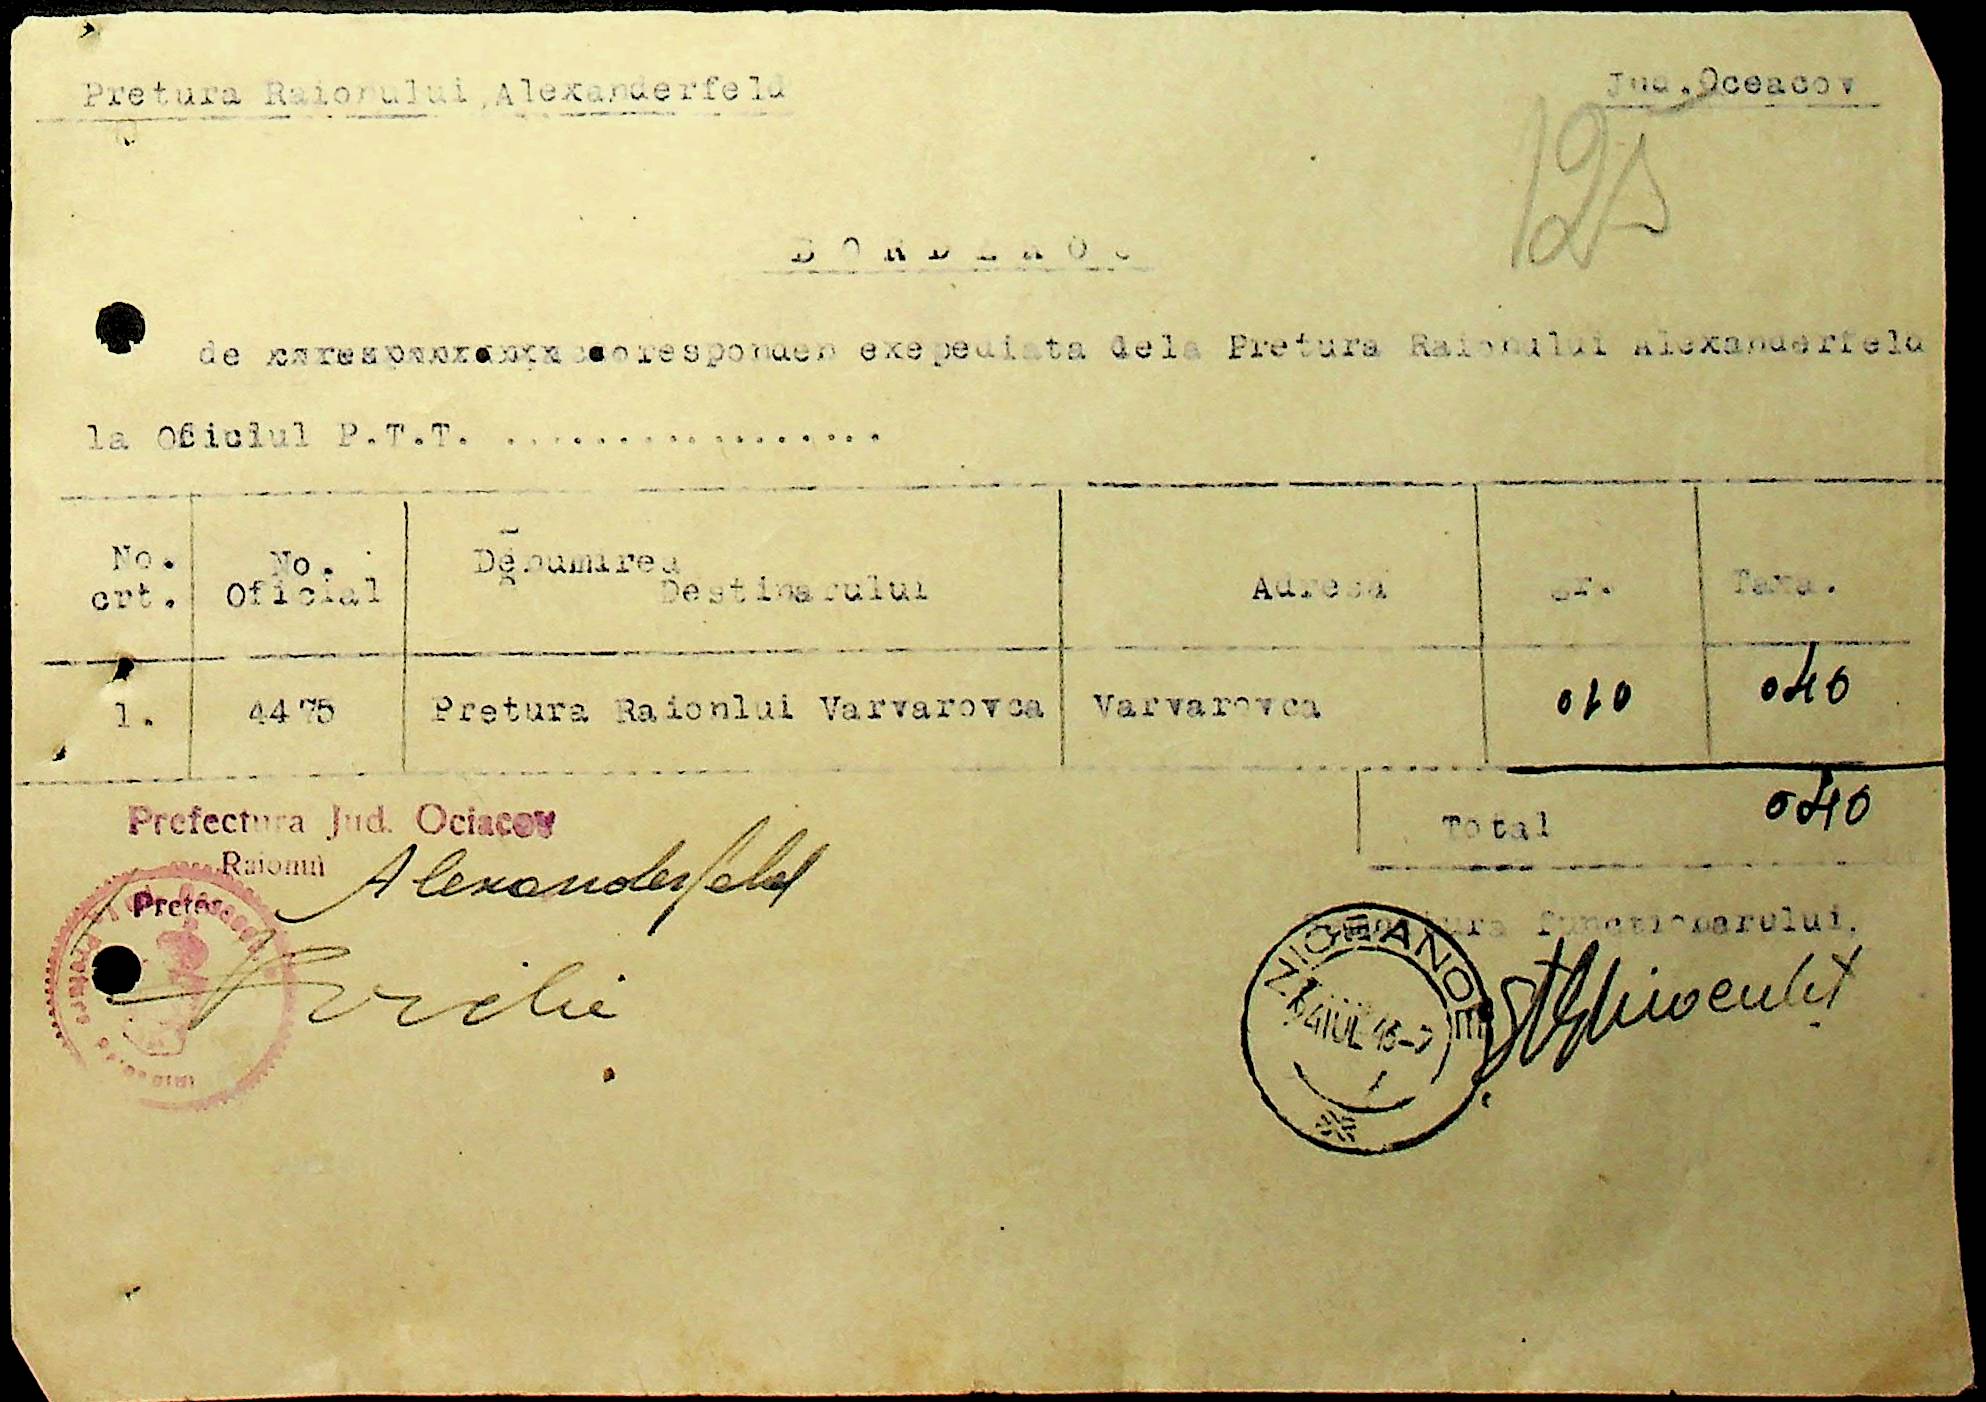 Pretura Raionului Alexanderfeld
Jud. Oceacov
125
B O R D E R O U
de coresponden exepediata dela Pretura Raionului Alexanderfeld
la Oficiul P.T.T. ..................
No. crt. No. Oficial Denumirea Destinarului Adresa Gr. Taxa.
1. 4475 Pretura Raionlui Varvarovca Varvarovca 010 040
Total 040
Prefectura Jud. Ociacov
Raionul Alexanderfeld
Pretor
functionarului.
4 IUL 43